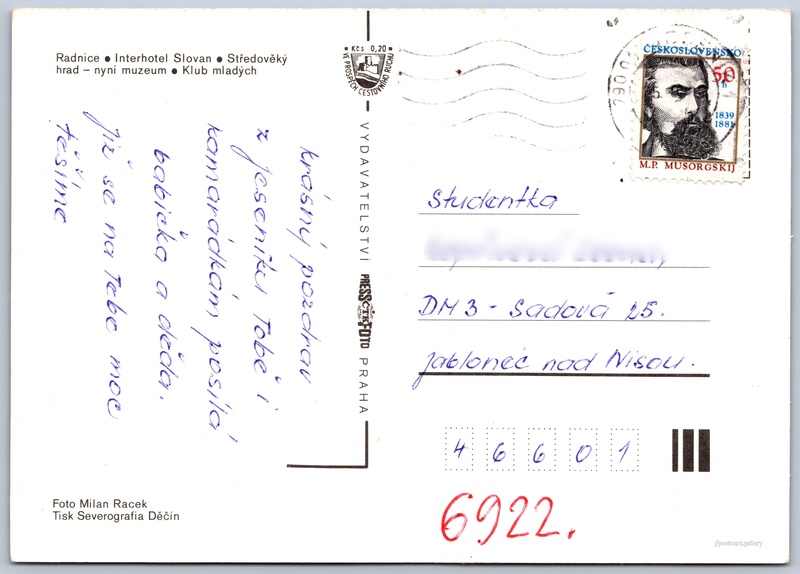 Radnice • Interhotel Slovan • Středověký
hrad – nyní muzeum • Klub mladých
Kčs 0,20
VE PROSPĚCH CESTOVNÍHO RUCHU
krásný pozdrav
z Jeseníku Tobě i
kamarádkám posílá
babička a děda.
Již se na Tebe moc
těšíme
VYDAVATELSTVÍ PRESSFOTO PRAHA
ČTK
ČESKOSLOVENSKO
50
h
1839
1881
M.P. MUSORGSKIJ
790 01
Studentka
DM 3 - Sadová 25.
Jablonec nad Nisou.
46601
6922.
Foto Milan Racek
Tisk Severografia Děčín
postcard.gallery